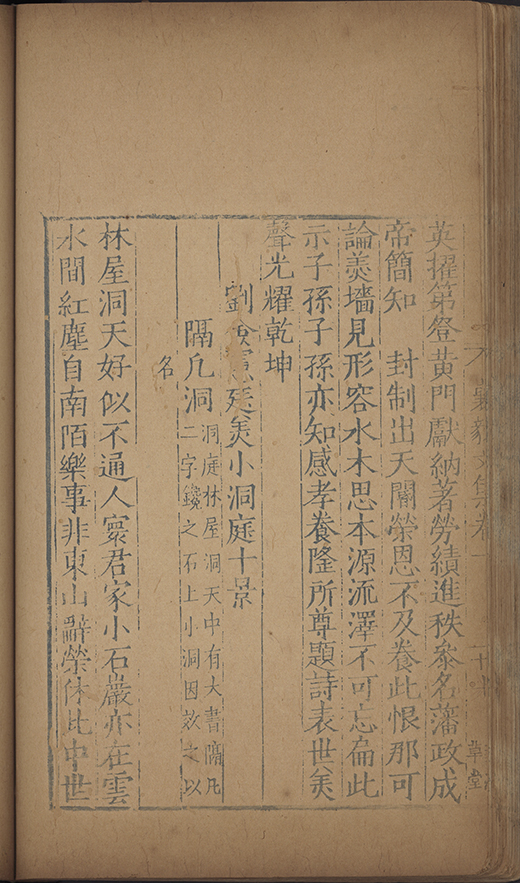 英擢第登黃門獻納著勞績進秩叅名藩政成
帝簡知 封制出天闕榮恩不及養此恨那可
論羹墻見形容水木思本源流澤不可忘扁此
示子孫子孫亦知感孝養隆所尊題詩表世羙
聲光耀乾坤
劉僉憲廷羙小洞庭十景
隔凡洞 洞庭林屋洞天中有大書隔凡
二字鐫之石上小洞因效之以
名
林屋洞天好似不通人寰君家小石巖亦在雲
水間紅塵自南陌樂事非東山辭榮休比中世
襄毅文集卷一
草堂